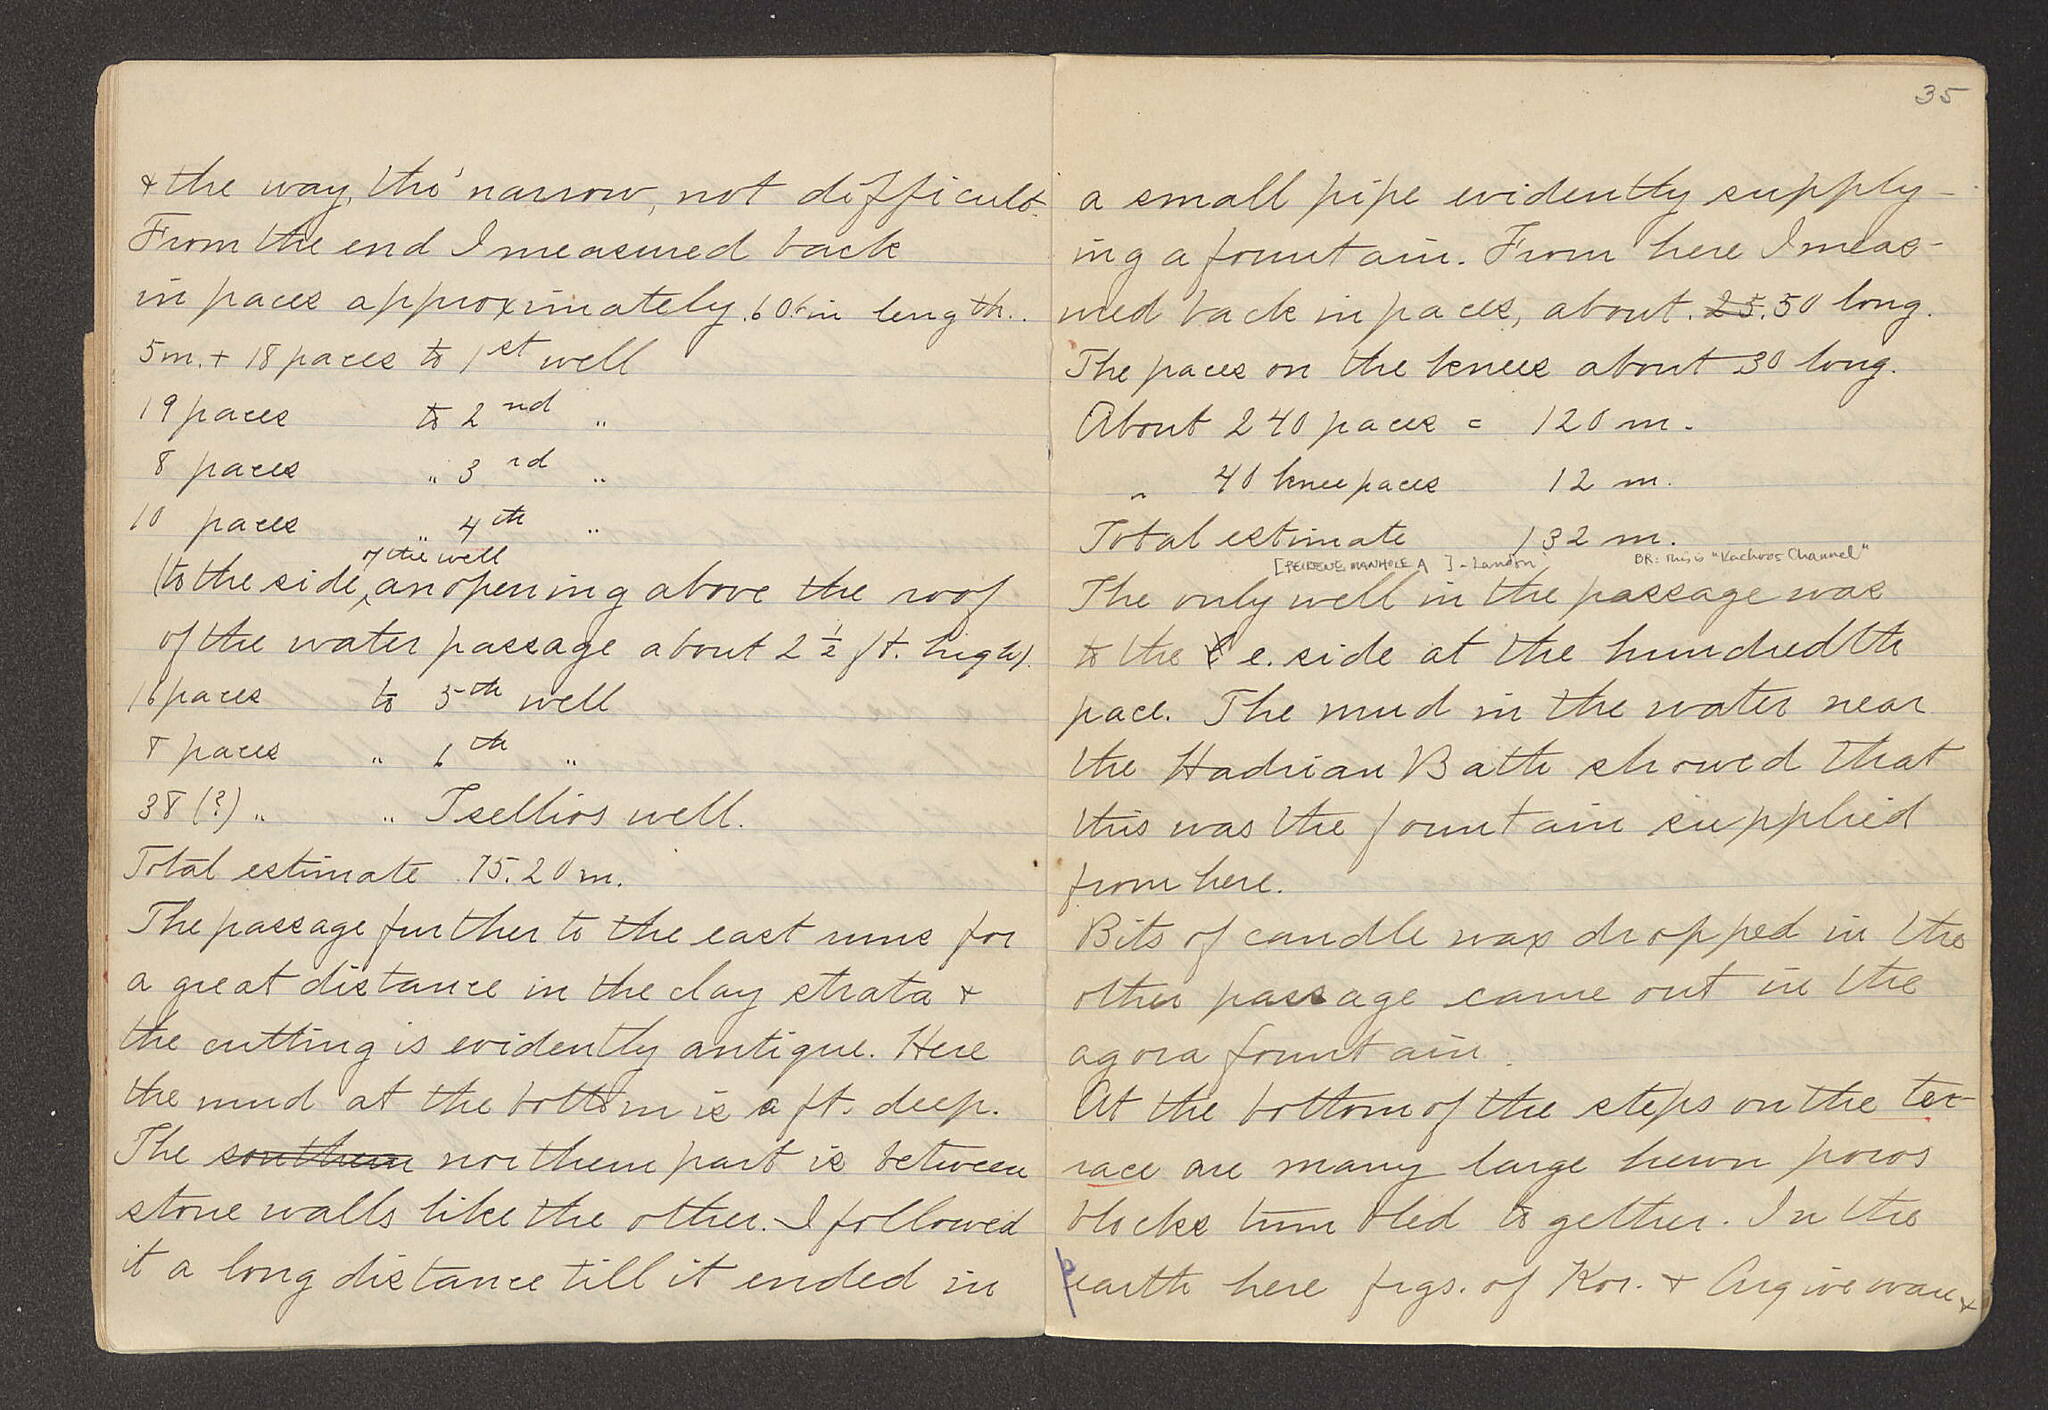 & the way, tho' narrow, not difficult.
From the end I measured back
in paces approximately .60 in length.
5m. + 18 paces to 1st well
19 paces to 2nd "
8 paces " 3rd "
10 paces " 4th "
of the well
(to the side an opening above the roof
of the water passage about 2 1/2 ft. high).
16 paces to 5th well
8 paces " 6th "
38 (?) " " Tsellios well.
Total estimate 75.20 m.
The passage further to the east runs for
a great distance in the clay strata &
the cutting is evidently antique. Here
the mud at the bottom is a ft. deep.
The southern northern part is between
stone walls like the other. I followed
it a long distance till it ended in
35
a small pipe evidently supply-
ing a fountain. From here I meas-
ured back in paces, about .25 .50 long.
The paces on the knees about 30 long.
About 240 paces = 120 m.
" 40 knee paces 12 m.
Total estimate 132 m.
[PEIRENE MANHOLE A ] - Landon BR: This is "Kachros Channel"
The only well in the passage was
to the e. side at the hundredth
pace. The mud in the water near
the Hadrian Bath showed that
this was the fountain supplied
from here.
Bits of candle wax dropped in the
other passage came out in the
agora fountain.
At the bottom of the steps on the ter-
race are many large hewn poros
blocks tumbled together. In the
earth here frgs. of Kor. & Argive ware &